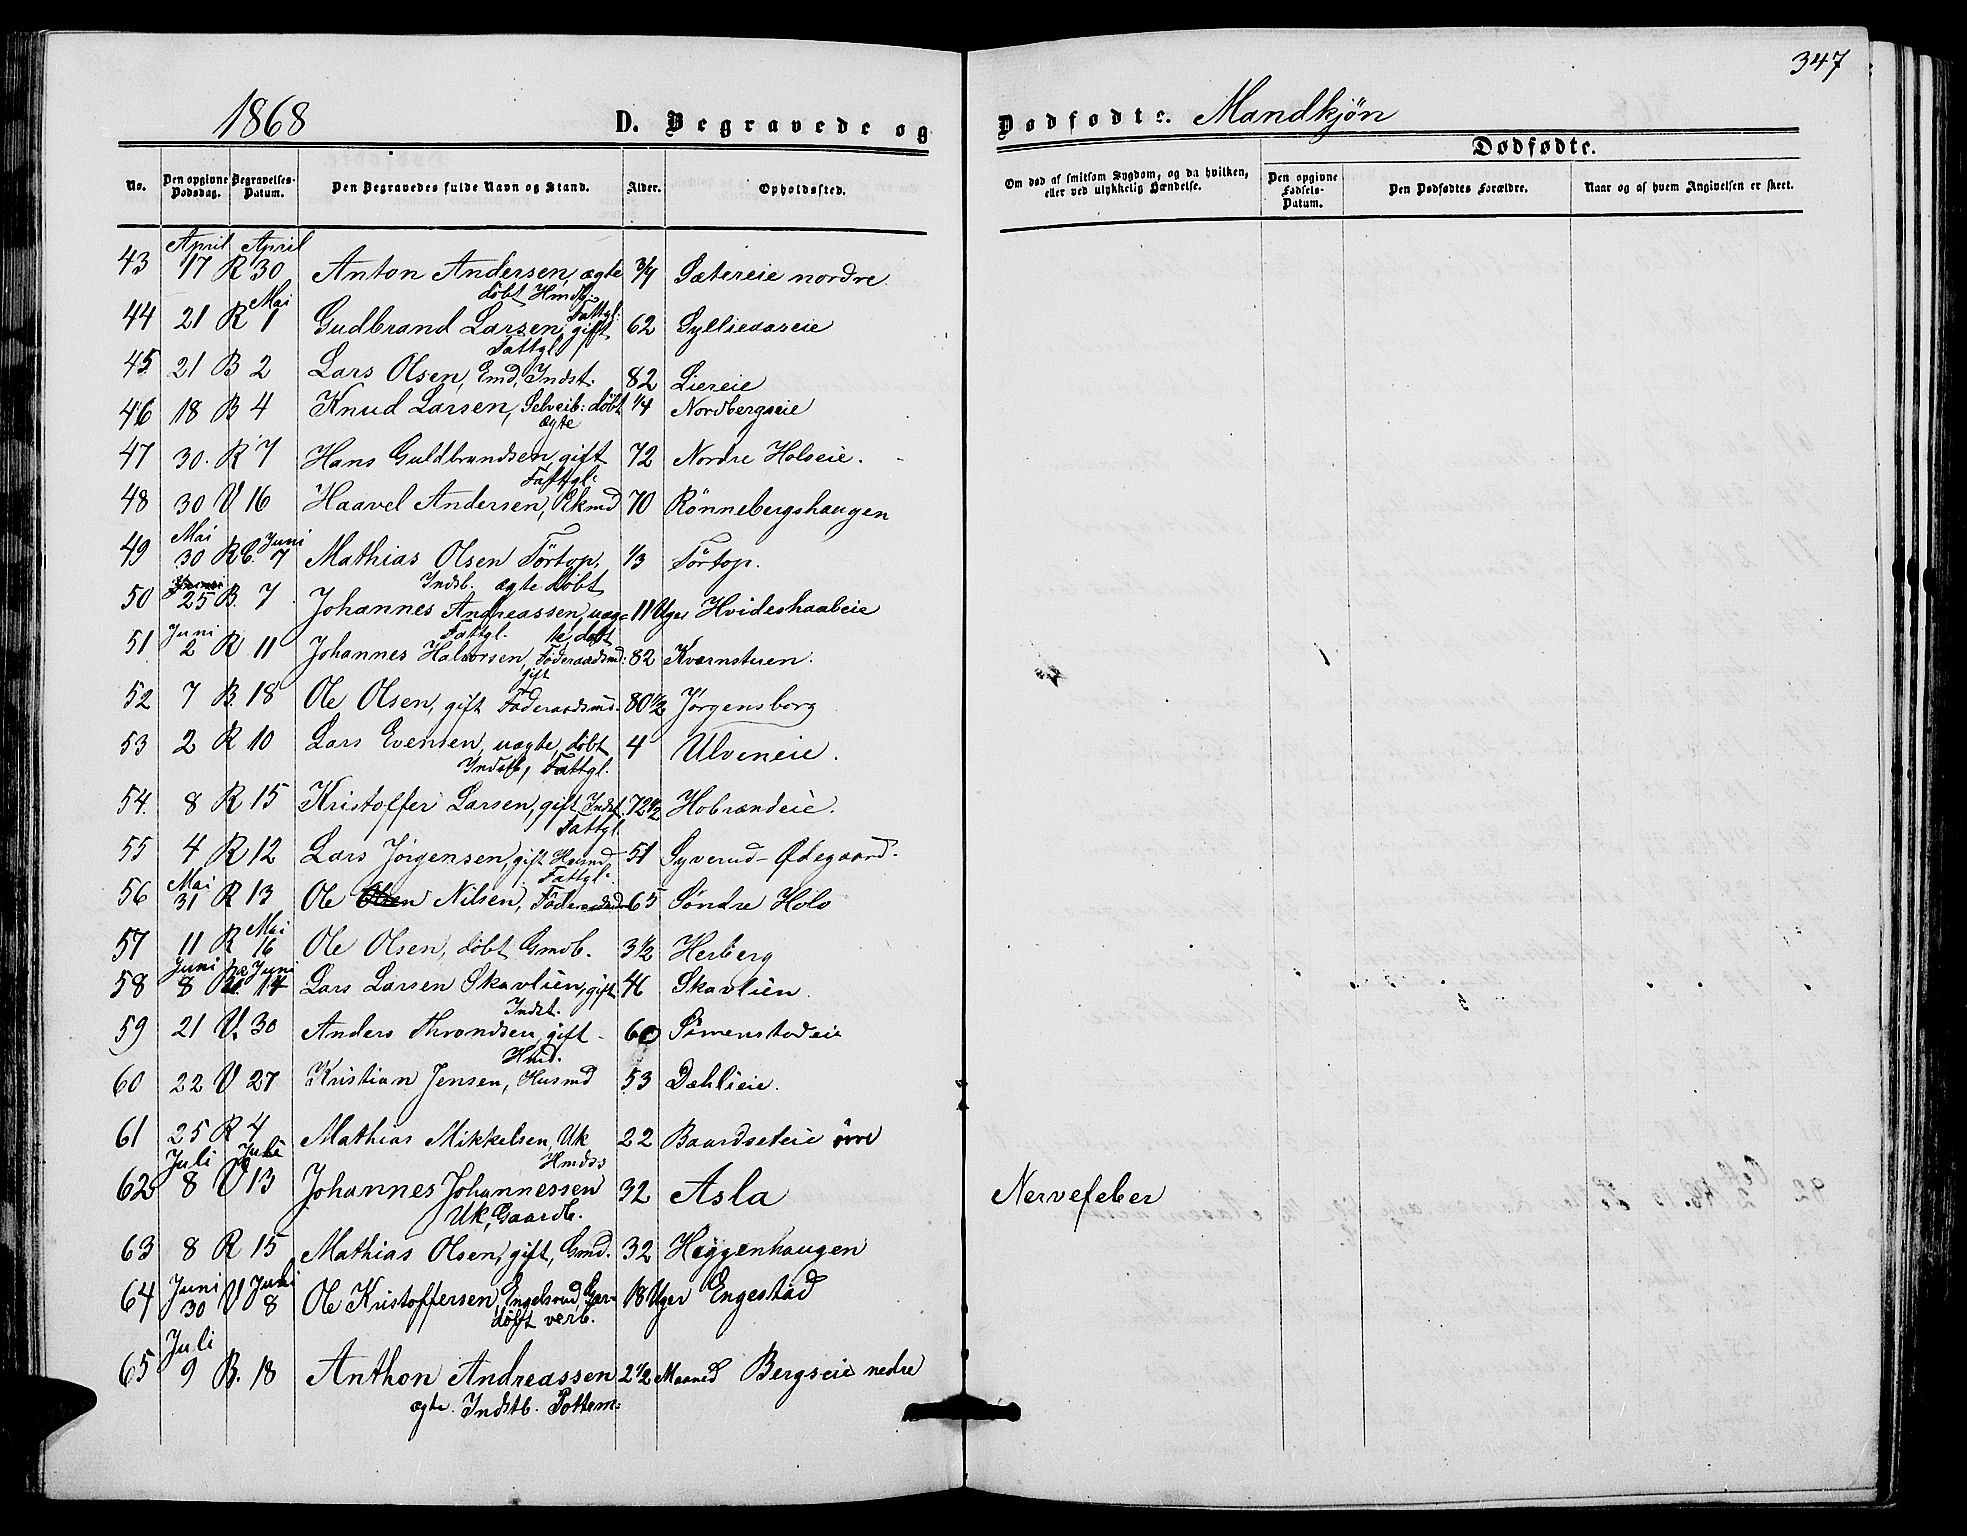 347
1868 D. Begravede og Dødfødte. Mandkjøn
Dødfødte.
No. Den opgivne Dødsdag. Begravelses-Datum. Den Begravedes fulde Navn og Stand. Alder. Opholdssted. Om død af smitsom Sygdom, og da hvilken, eller ved ulykkelig Hændelse. Den opgivne Fødsels-Datum. Den Dødfødtes Forældre. Naar og af hvem Angivelsen er skeet.
April April
43 17 R 30 Anton Andersen, ægte 3/4 Sætereie nordre
døbt Hmdb.
Mai Fattgl:
44 21 R 1 Gudbrand Larsen, gift 62 Sylliaaseie
Fattgl
45 21 B 2 Lars Olsen, Emd, Indst. 82 Liereie
46 18 B 4 Knud Larsen, Selveib: døbt 1/4 Nordbergseie
ægte
47 30. R 7 Hans Guldbrandsen, gift 72 Nordre Holseie.
Fattgl:
48 30 V 16 Haavel Andersen, Ekmd 70 Rönnebergshaugen
Mai Juni
49 30 R.C. 7 Mathias Olsen Törtop, 1/3 Törtop.
Indsb. ægte døbt
50 25 B. 7 Johannes Andreassen, uæg= 11 Uger Hvideshaabeie
Juni Fattgl. te, døbt
51 2 R 11 Johannes Halvorsen, Föderaadsmd: 82 Kværnstuen.
gift
52 7 B. 18 Ole Olsen, gift Föderaadsmd. 80 1/2 Jørgensborg
53 2 R 10 Lars Evensen, uægte, døbt 4 Ulveneie.
Indstb, Fattgl.
54. 8 R 15 Kristoffer Larsen, gift Indst. 72 1/2 Hobrændeie.
Fattgl.
55 4 R 12 Lars Jörgensen, gift Husmd 51 Syverud-Ødegaard.
Mai Fattgl:
56 31 R 13 Ole Olsen Nilsen, Föderaadsmd 65 Söndre Holo
Mai
57 11 R 16 Ole Olsen, døbt Gmdb. 3 1/2 Herberg
Juni Juni
58 8 14 Lars Larsen Skavlien, gift 46 Skavlien.
Indst.
59 21 V. 30 Anders Throndsen, gift 60 Simenstadeie
Hmd.
60 22 V 27 Kristian Jensen, Husmd 53 Dæhlieie.
61 25 R 4 Mathias Mikkelsen, Uk 22 Baardseteie övre
Juli Juli Hmdss
62 8 V 13 Johannes Johannessen 32 Asla Nervefeber
Uk, Gaardb.
63 8 R 15 Mathias Olsen, gift, Gmd. 32 Heggenhaugen
Juni Juli
64 30 V 8 Ole Kristoffersen, Engelsrud Gaar= 18 Uger Engestad
døbt verb.
Juli
65 9 B. 18 Anthon Andreassen 2 1/2 Maaned Bergseie nedre
ægte. Indstb. Pottem: